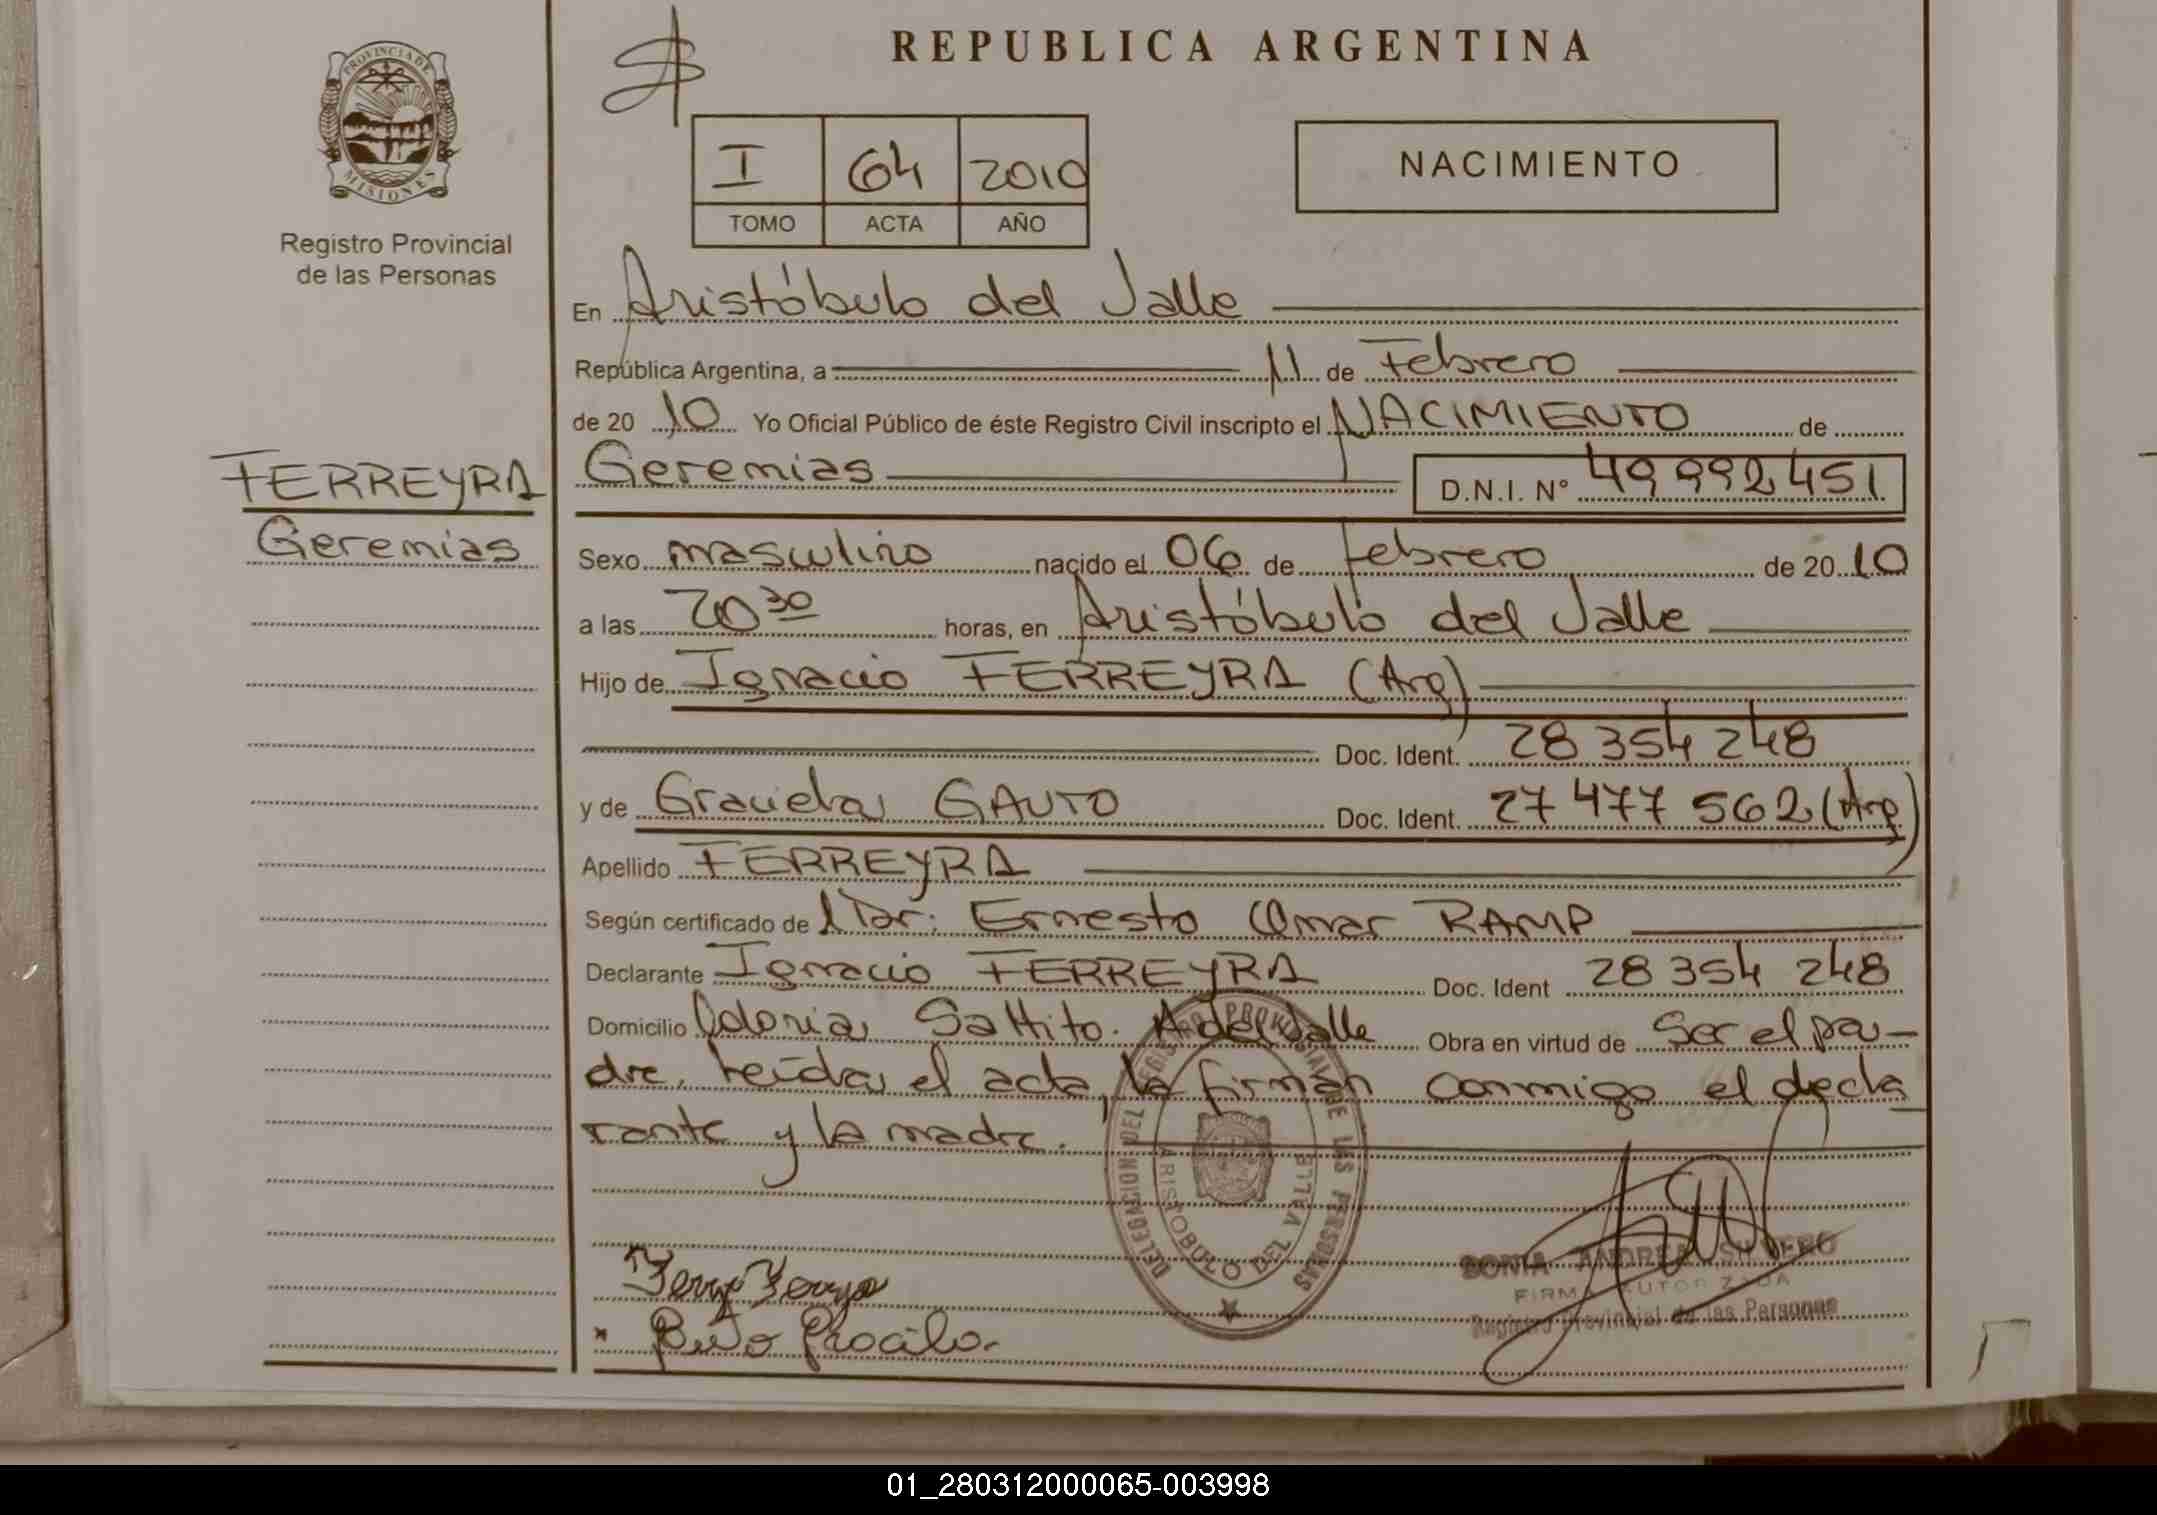 PROVINCIA DE
MISIONES
Registro Provincial
de las Personas
FERREYRA
Geremias
REPUBLICA ARGENTINA
I 64 2010
TOMO ACTA AÑO
NACIMIENTO
En Aristóbulo del Valle
República Argentina, a 11 de Febrero
de 20 10 Yo Oficial Público de éste Registro Civil inscripto el NACIMIENTO de
Geremias D.N.I. Nº 49 992 451
Sexo masculino nacido el 06 de febrero de 20 10
a las 20 30 horas, en Aristóbulo del Valle
Hijo de Ignacio FERREYRA (Arg)
Doc. Ident. 28 354 248
y de Graciela GAUTO Doc. Ident. 27 477 562 (Arg)
Apellido FERREYRA
Según certificado de Dr: Ernesto Omar RAMP
Declarante Ignacio FERREYRA Doc. Ident 28 354 248
Domicilio Colonia Saltito. A del Valle Obra en virtud de Ser el pa-
dre. Leída el acta, la firman conmigo el decla
rante y la madre.
DELEGACION DEL REGISTRO PROVINCIAL DE LAS PERSONAS
ARISTOBULO DEL VALLE
SONIA ANDREA SILVERO
FIRMA AUTORIZADA
Registro Provincial de las Personas
01_280312000065-003998